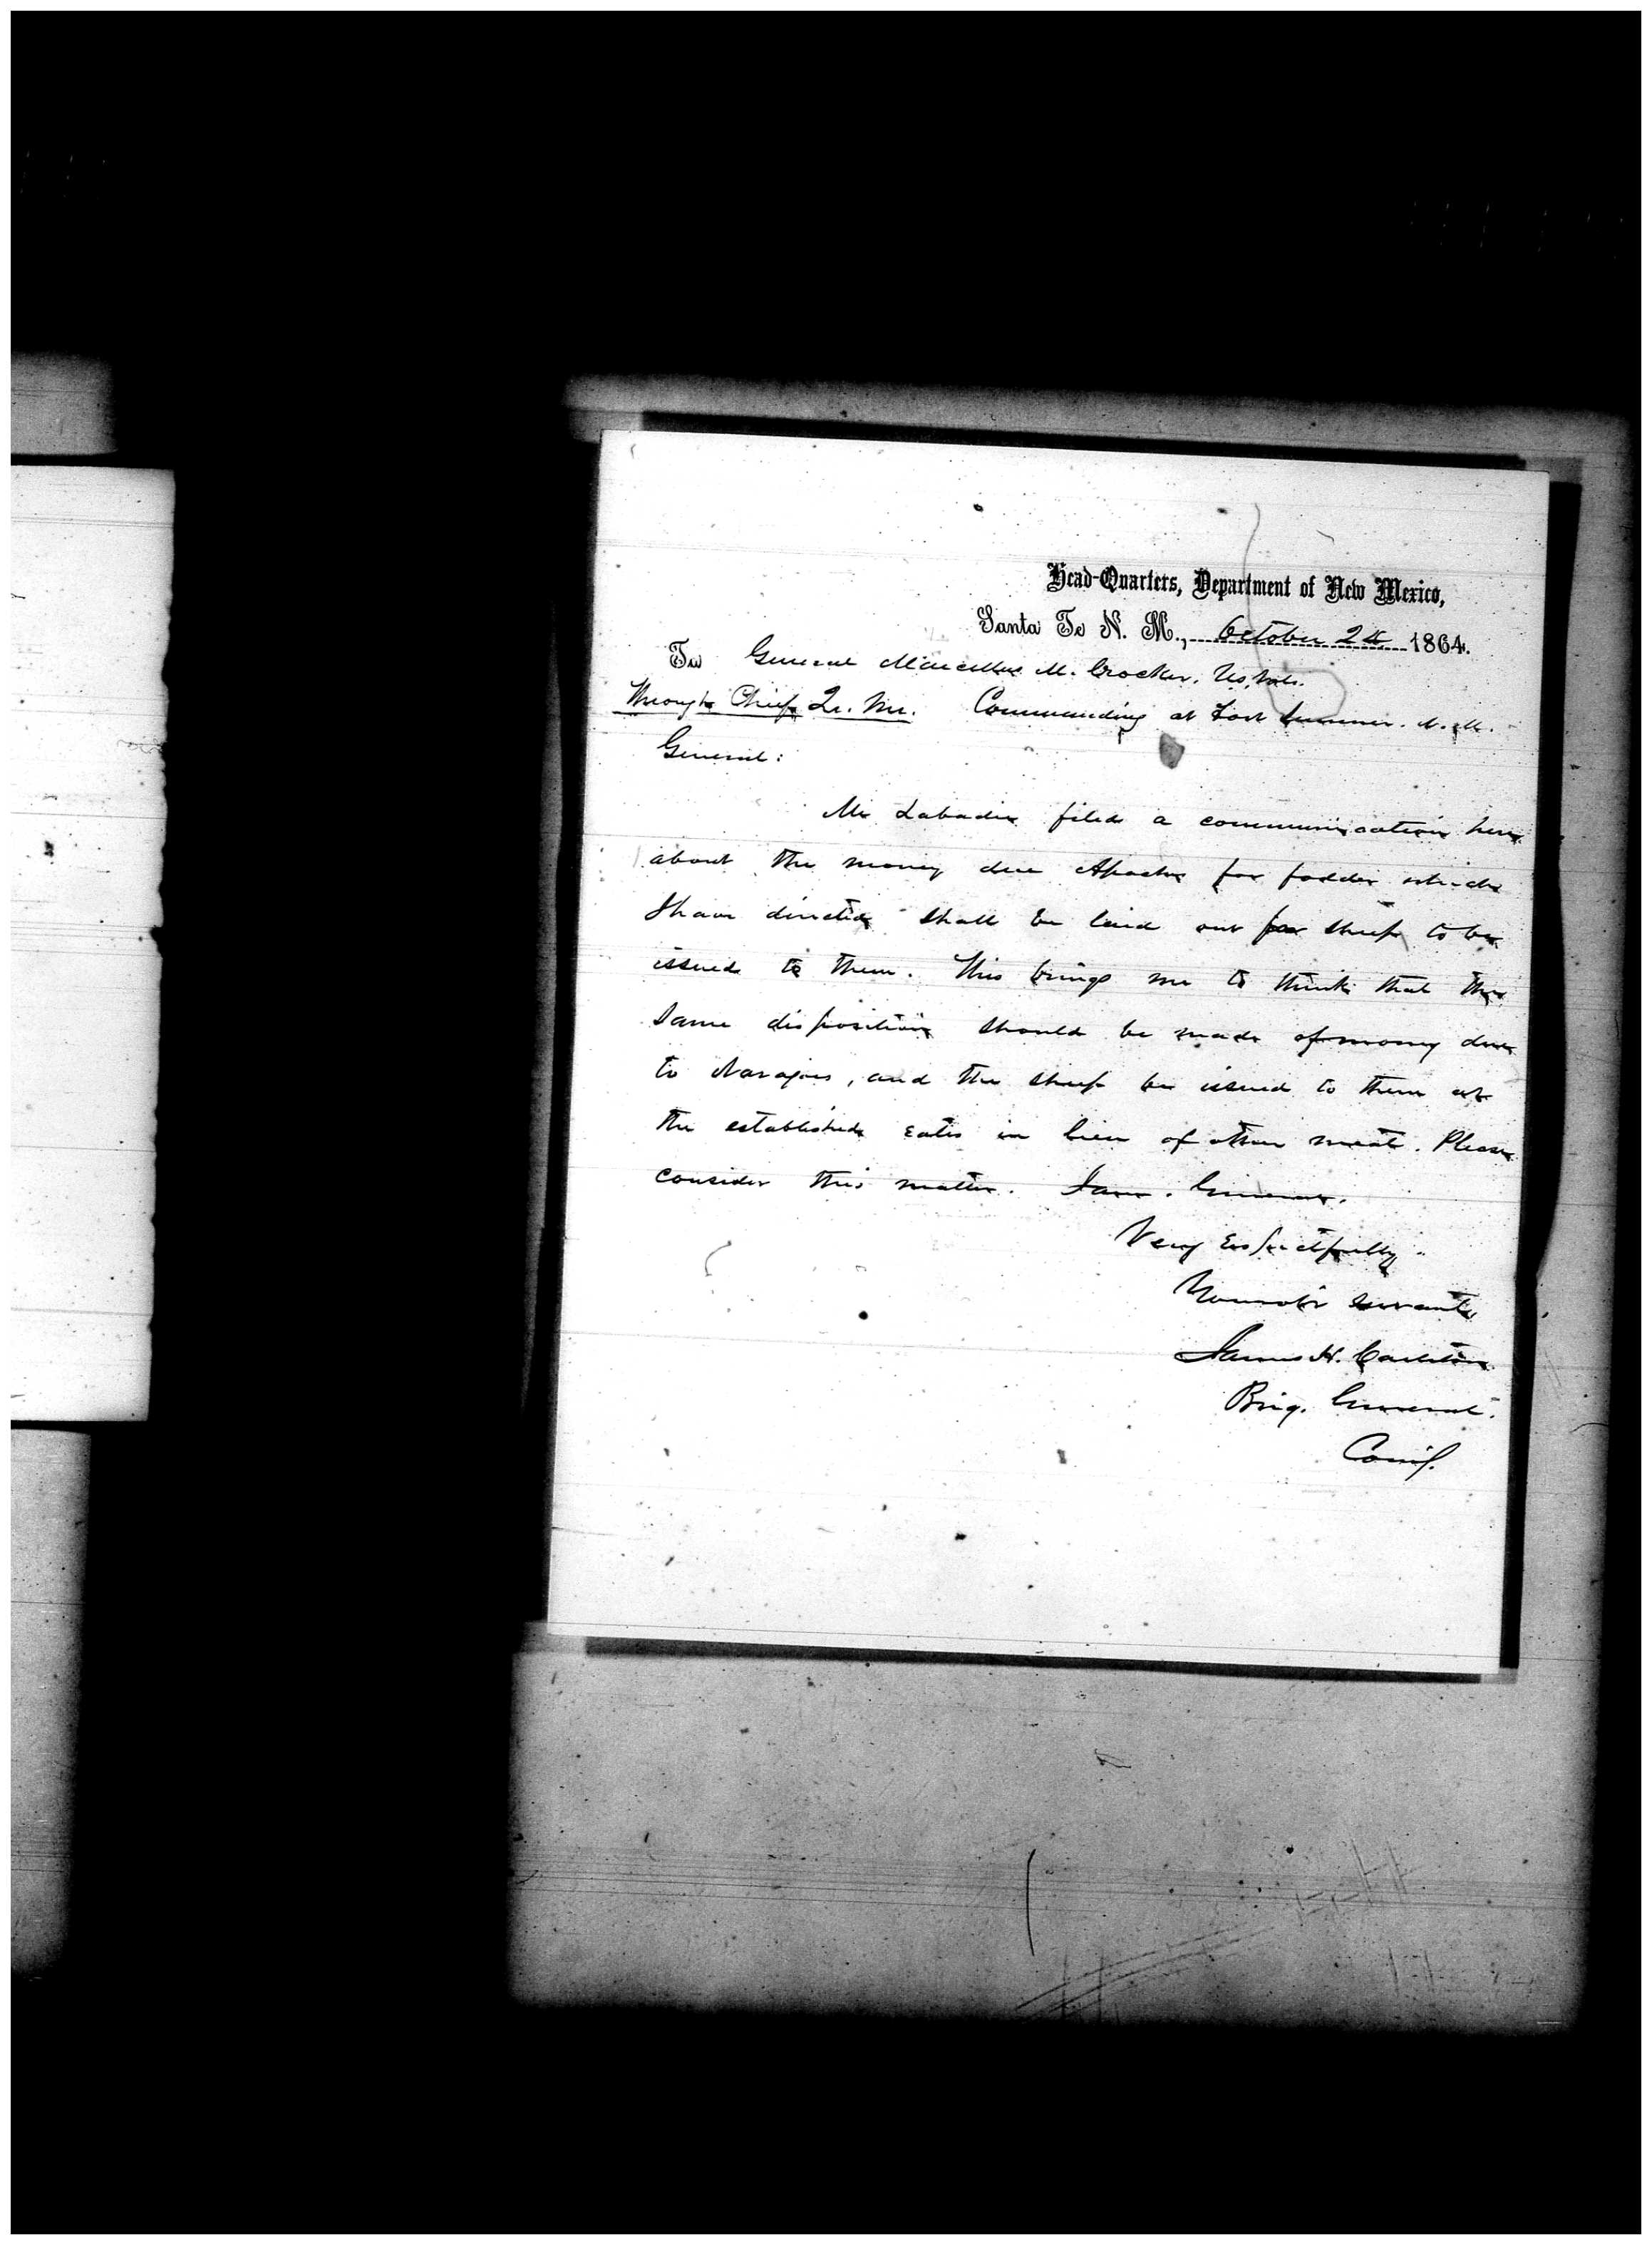 Head-Quarters, Department of New Mexico,
Santa Fe N. M., October 24 1864.
To General Marcellus M. Crocker. US Vols.
Through Chief Qr. Mr. Commanding at Fort Sumner. N. M.
General:
Mr Labadie filed a communication here
about the money due Apaches for fodder which
I have directed shall be laid out for sheep to be
issued to them. This brings me to think that the
same disposition should be made of money due
to Navajoes, and the sheep be issued to them at
the established rates in lieu of other meat. Please
consider this matter. I am. General.
Very respectfully.
Your obt servant,
James H. Carleton
Brig. General.
Com'g.